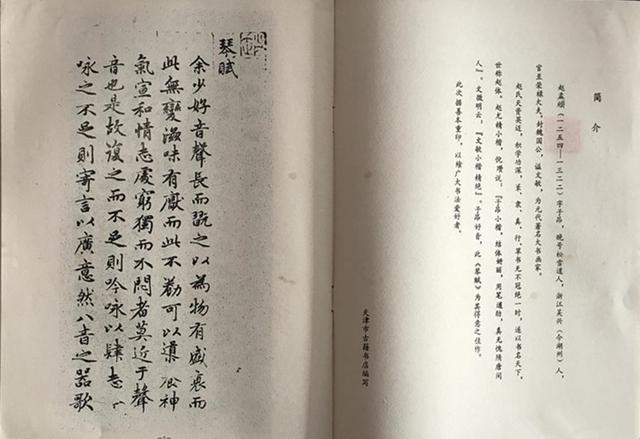 简介
赵孟頫（一二五四—一三二二）字子昂，晚号松雪道人，浙江吴兴（今湖州）人，
官至荣禄大夫，封魏国公，谥文敏，为元代著名大书画家。
赵氏天资英迈，积学功深，篆、隶、真、行、草书无不冠绝一时，遂以书名天下，
世称赵体。赵尤精小楷，倪瓒说：『子昂小楷，结体妍丽，用笔遒劲，真无愧隋唐间
人』。文徵明云：『文敏小楷精绝』。子昂好音，此《琴赋》为其得意之佳作。
此次据善本重印，以飨广大书法爱好者。
天津市古籍书店编写
琴賦
余少好音聲長而翫之以為物有盛衰而
此無變滋味有厭而此不勌可以導神
氣宣和情志處窮獨而不悶者莫近于聲
音也是故復之而不足則吟咏以肆志〻
咏之不足則寄言以廣意然八音之器歌